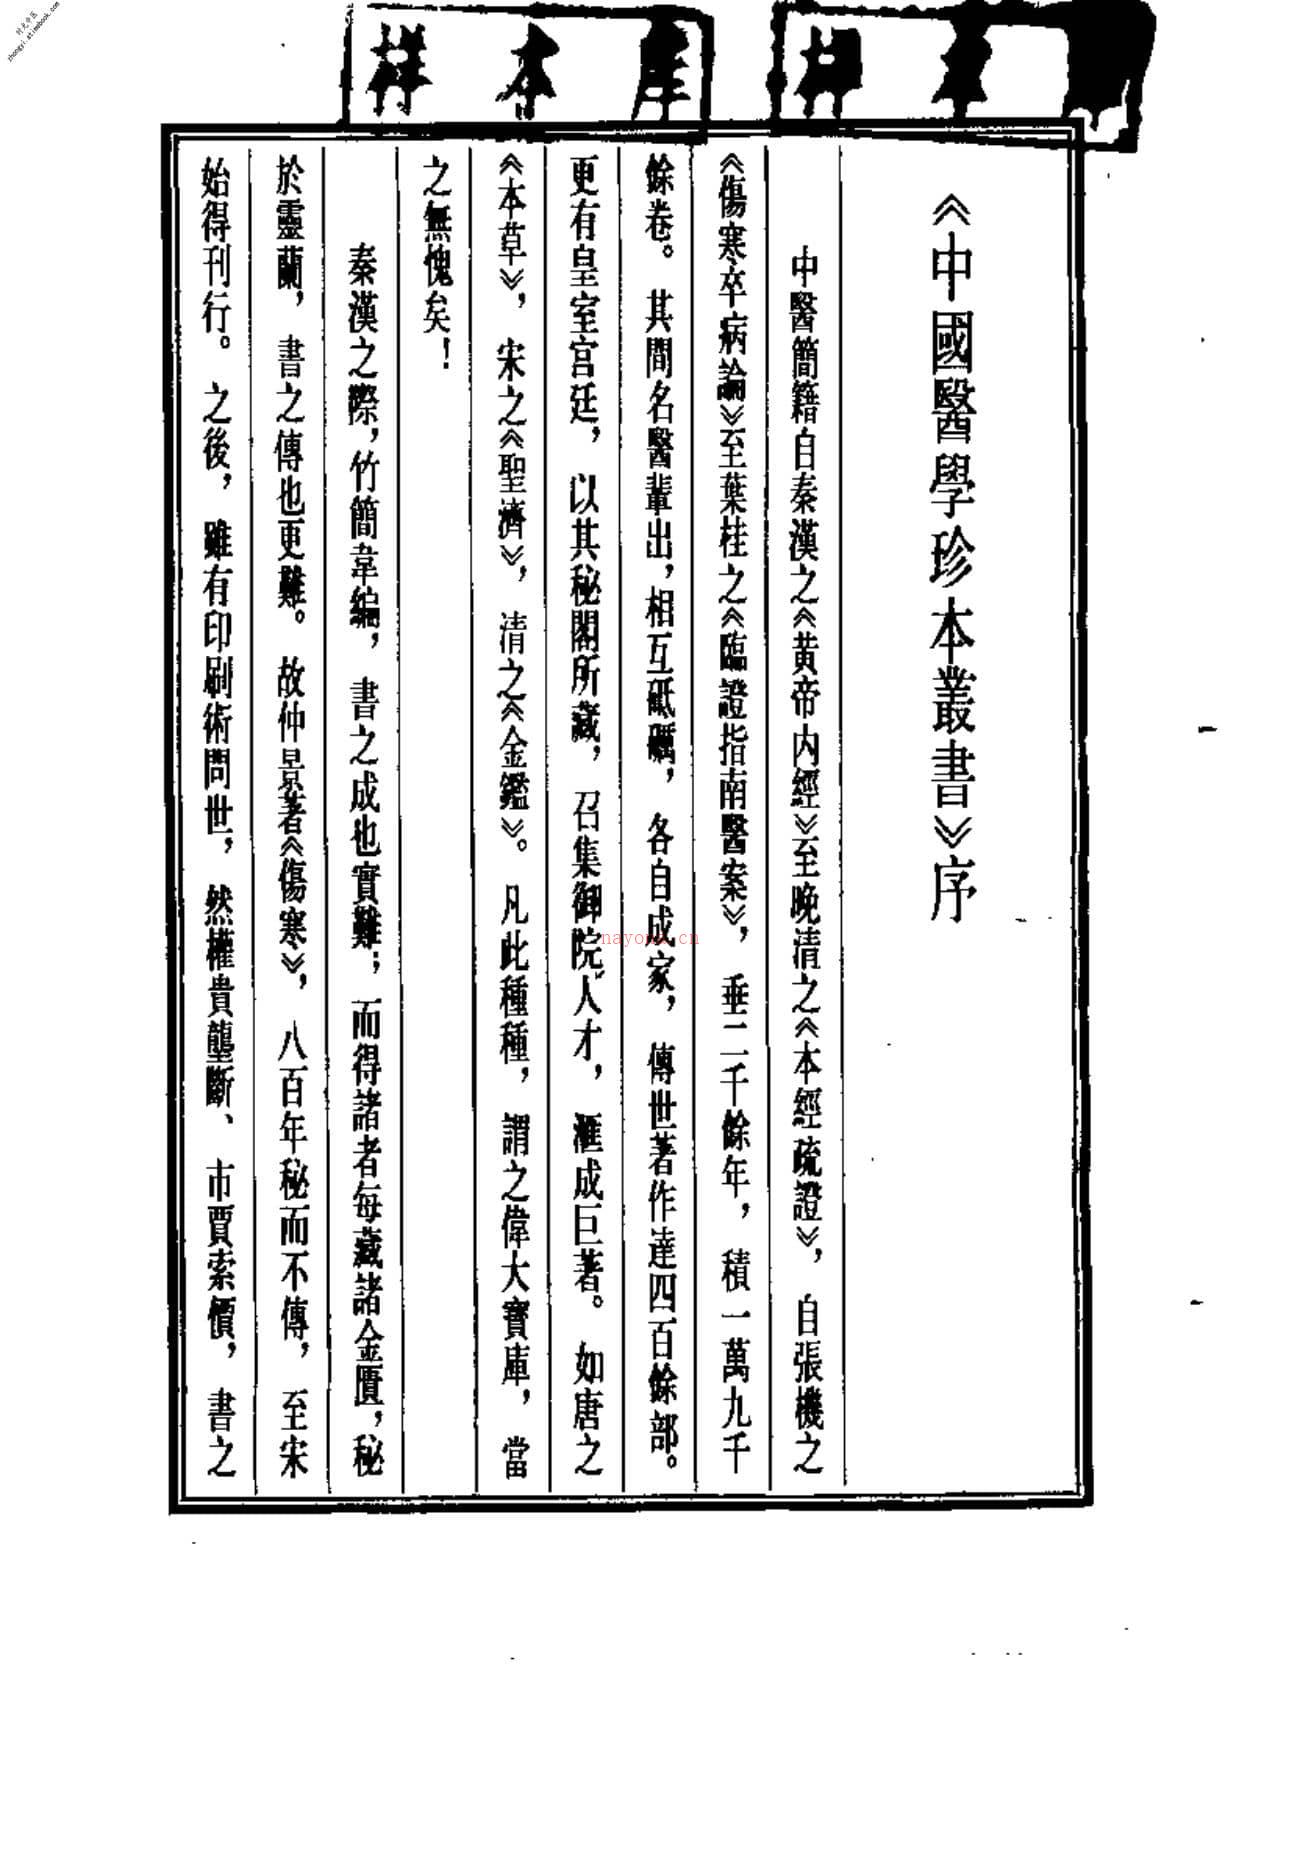 时光中医
zhongyi.atimebook.com
样本库
样本
《中國醫學珍本叢書》序
中醫簡籍自秦漢之《黃帝內經》至晚清之《本經疏證》，自張機之
《傷寒卒病論》至葉桂之《臨證指南醫案》，垂二千餘年，積一萬九千
餘卷。其間名醫輩出，相互砥礪，各自成家，傳世著作達四百餘部。
更有皇室宮廷，以其秘閣所藏，召集御院人才，滙成巨著。如唐之
《本草》，宋之《聖濟》，清之《金鑑》。凡此種種，謂之偉大寶庫，當
之無愧矣！
秦漢之際，竹簡韋編，書之成也實難；而得諸者每藏諸金匱，秘
於靈蘭，書之傳也更難。故仲景著《傷寒》，八百年秘而不傳，至宋
始得刊行。之後，雖有印刷術問世，然權貴壟斷、市賈索價，書之
nayona.cn